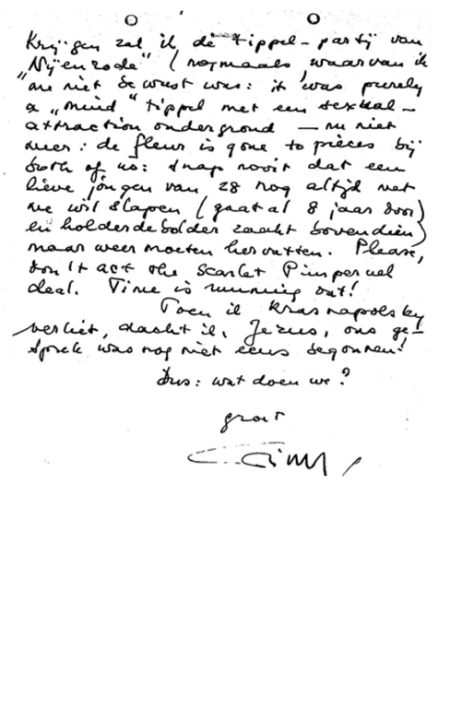 Krijgen zal ik, dè tippel-partij van
"Nijenrode" (nogmaals, waarvan ik
me niet bewust was: it was purely
a "mind" tippel met een sexual-
attraction ondergrond — nu niet
meer: de fleur is gone to pièces bij
both of us: snap nooit dat een
lieve jongen van 28 nog altijd met
me wil slapen (gaat al 8 jaar door)
en holderdebolder zacht bovendien)
maar weer moeten
Please,
don't act the Scarlet Pimpernel
deal. Time is running out!
Toen ik Krasnapolsky
verliet, dacht ik, Jezus, ons ge-
sprek was nog niet eens begonnen!
Dus: wat doen we?
groet